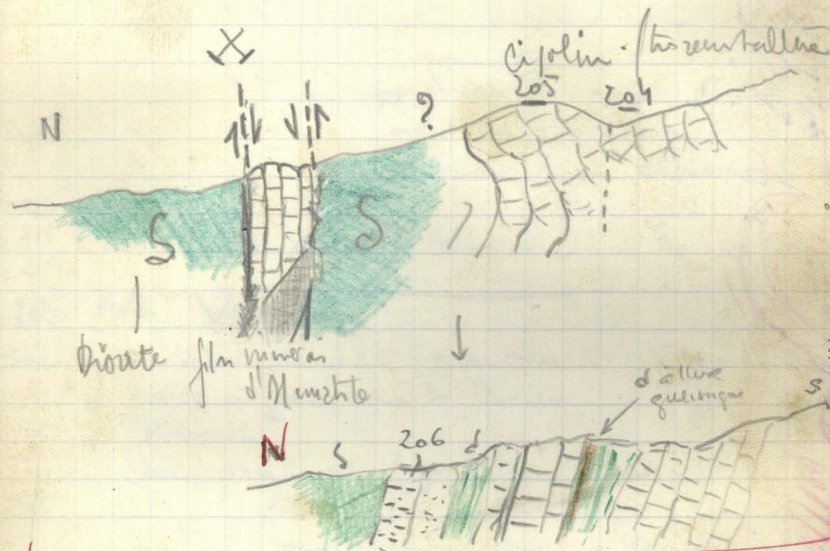 Cipolin. (très recristallisé
205 204
?
N
S S
Diorite filon minerai
d'Hématite
d'allure
gneissique
N S 206 d S